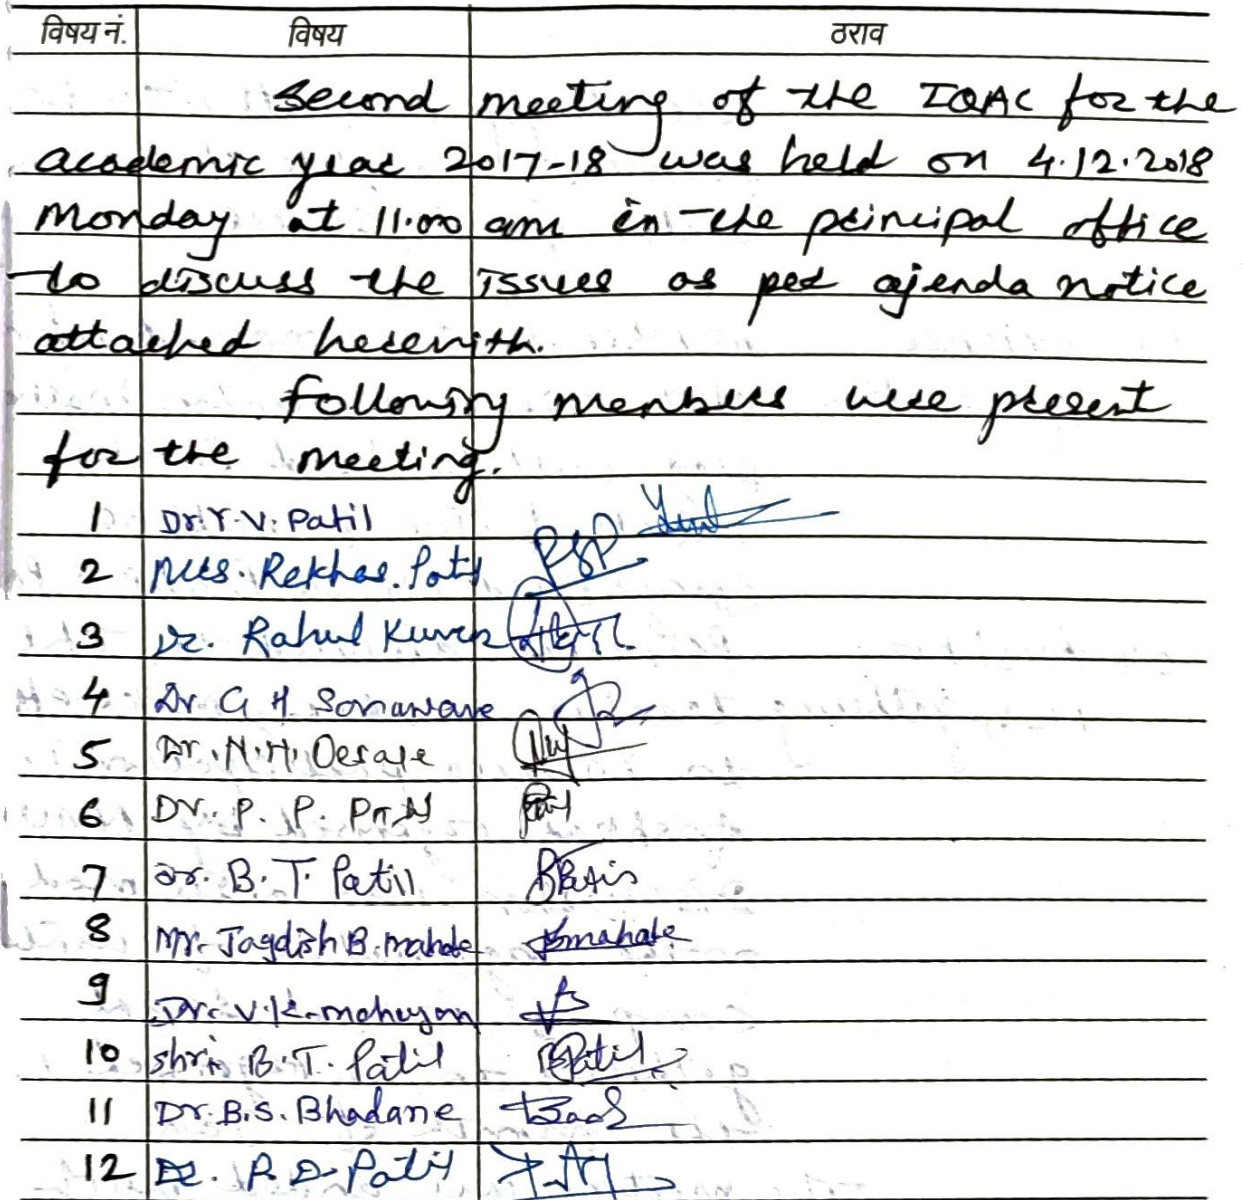 विषय नं. विषय ठराव
Second meeting of the IQAC for the
academic year 2017-18 was held on 4.12.2018
Monday at 11.00 am in the principal office
to discuss the issues as per ajenda notice
attached herewith.
Following members were present
for the meeting.
1 Dr. Y. V. Patil
2 Mrs. Rekha S. Patil PSP
3 Dr. Rahul Kuver
4 Dr G H Sonawane
5 Dr. N. H. Desale
6 Dr. P. P. Patil
7 Dr. B. T. Patil BPatil
8 Mr. Jagdish B. mahale JBmahale
9 Dr. V. K. mahajan
10 Shri. B. T. Patil BPatil
11 Dr. B. S. Bhadane
12 Dr. P. D. Patil